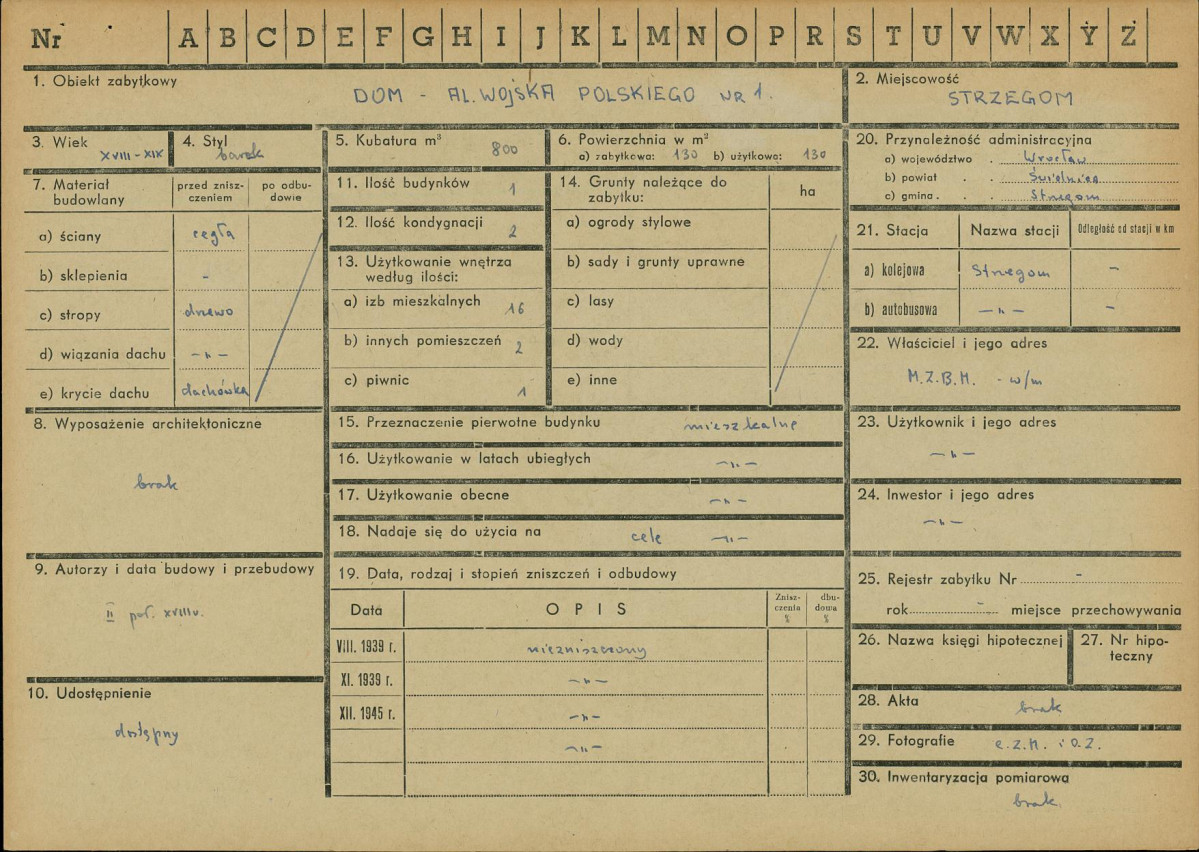 Nr A B C D E F G H I J K L M N O P R S T U V W X Y Z
1. Obiekt zabytkowy
DOM - AL. WOJSKA POLSKIEGO NR 1.
2. Miejscowość
STRZEGOM
3. Wiek
XVIII - XIX
4. Styl
barok
5. Kubatura m³
800
6. Powierzchnia w m²
a) zabytkowa: 130 b) użytkowa: 130
20. Przynależność administracyjna
a) województwo . Wrocław
b) powiat . . Świdnica
c) gmina . . . Strzegom
7. Materiał budowlany
przed znisz-
czeniem
po odbu-
dowie
a) ściany cegła
b) sklepienia -
c) stropy drzewo
d) wiązania dachu -"-
e) krycie dachu dachówka
11. Ilość budynków 1
12. Ilość kondygnacji 2
13. Użytkowanie wnętrza
według ilości:
a) izb mieszkalnych 16
b) innych pomieszczeń 2
c) piwnic 1
14. Grunty należące do
zabytku:
ha
a) ogrody stylowe
b) sady i grunty uprawne
c) lasy
d) wody
e) inne
21. Stacja Nazwa stacji Odległość od stacji w km
a) kolejowa Strzegom -
b) autobusowa -"- -
22. Właściciel i jego adres
M.Z.B.M. - w/m
8. Wyposażenie architektoniczne
brak
15. Przeznaczenie pierwotne budynku mieszkalne
16. Użytkowanie w latach ubiegłych -"-
17. Użytkowanie obecne -"-
18. Nadaje się do użycia na cele -"-
23. Użytkownik i jego adres
-"-
24. Inwestor i jego adres
-"-
9. Autorzy i data budowy i przebudowy
II poł. XVIII w.
10. Udostępnienie
dostępny
19. Data, rodzaj i stopień zniszczeń i odbudowy
Data OPIS
Znisz-
czenia
%
dbu-
dowa
%
VIII. 1939 r. niezniszczony
XI. 1939 r. -"-
XII. 1945 r. -"-
-"-
25. Rejestr zabytku Nr -
rok - miejsce przechowywania
26. Nazwa księgi hipotecznej
27. Nr hipo-
teczny
28. Akta
brak
29. Fotografie
30. Inwentaryzacja pomiarowa
brak